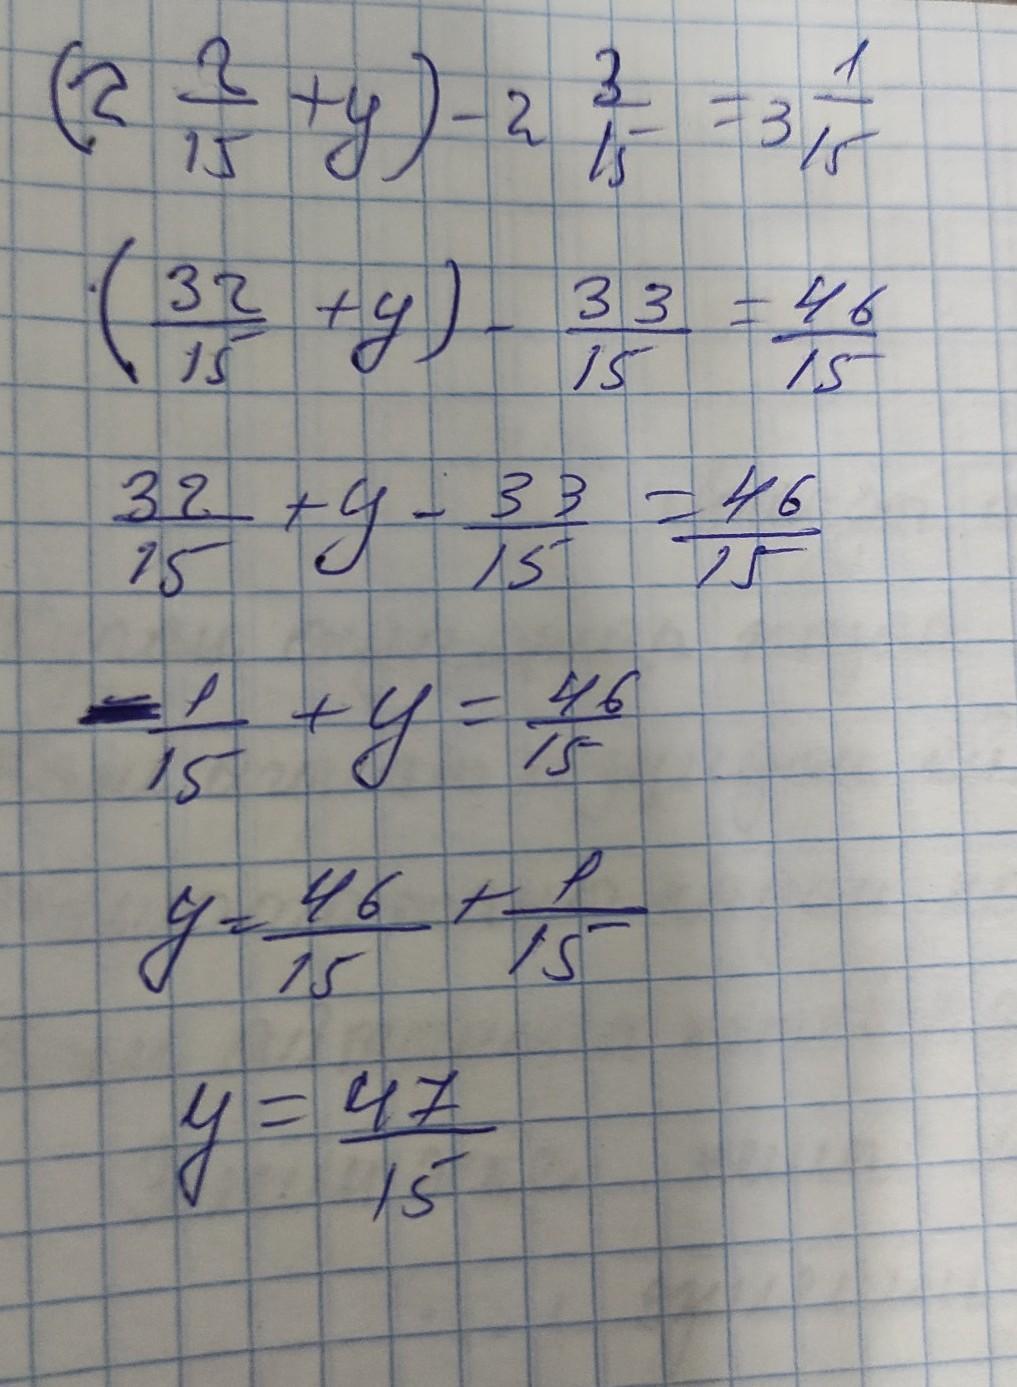 (2 2/15 + y) - 2 3/15 = 3 1/15
(32/15 + y) - 33/15 = 46/15
32/15 + y - 33/15 = 46/15
- 1/15 + y = 46/15
y = 46/15 + 1/15
y = 47/15